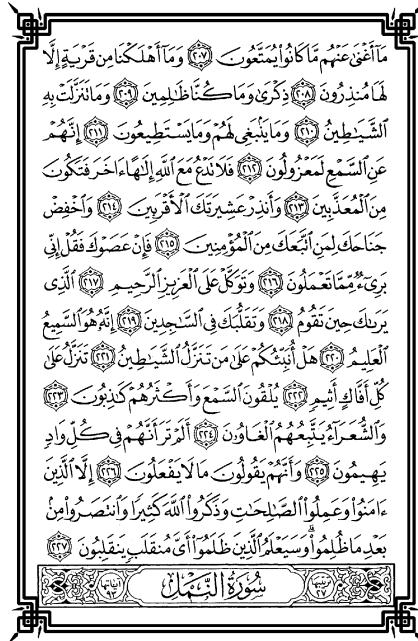 مَآ أَغْنَىٰ عَنْهُم مَّا كَانُوا۟ يُمَتَّعُونَ ﴿٢٠٧﴾ وَمَآ أَهْلَكْنَا مِن قَرْيَةٍ إِلَّا
لَهَا مُنذِرُونَ ﴿٢٠٨﴾ ذِكْرَىٰ وَمَا كُنَّا ظَـٰلِمِينَ ﴿٢٠٩﴾ وَمَا تَنَزَّلَتْ بِهِ
ٱلشَّيَـٰطِينُ ﴿٢١٠﴾ وَمَا يَنۢبَغِى لَهُمْ وَمَا يَسْتَطِيعُونَ ﴿٢١١﴾ إِنَّهُمْ
عَنِ ٱلسَّمْعِ لَمَعْزُولُونَ ﴿٢١٢﴾ فَلَا تَدْعُ مَعَ ٱللَّهِ إِلَـٰهًا ءَاخَرَ فَتَكُونَ
مِنَ ٱلْمُعَذَّبِينَ ﴿٢١٣﴾ وَأَنذِرْ عَشِيرَتَكَ ٱلْأَقْرَبِينَ ﴿٢١٤﴾ وَٱخْفِضْ
جَنَاحَكَ لِمَنِ ٱتَّبَعَكَ مِنَ ٱلْمُؤْمِنِينَ ﴿٢١٥﴾ فَإِنْ عَصَوْكَ فَقُلْ إِنِّى
بَرِىٓءٌ مِّمَّا تَعْمَلُونَ ﴿٢١٦﴾ وَتَوَكَّلْ عَلَى ٱلْعَزِيزِ ٱلرَّحِيمِ ﴿٢١٧﴾ ٱلَّذِى
يَرَىٰكَ حِينَ تَقُومُ ﴿٢١٨﴾ وَتَقَلُّبَكَ فِى ٱلسَّـٰجِدِينَ ﴿٢١٩﴾ إِنَّهُۥ هُوَ ٱلسَّمِيعُ
ٱلْعَلِيمُ ﴿٢٢٠﴾ هَلْ أُنَبِّئُكُمْ عَلَىٰ مَن تَنَزَّلُ ٱلشَّيَـٰطِينُ ﴿٢٢١﴾ تَنَزَّلُ عَلَىٰ
كُلِّ أَفَّاكٍ أَثِيمٍ ﴿٢٢٢﴾ يُلْقُونَ ٱلسَّمْعَ وَأَكْثَرُهُمْ كَـٰذِبُونَ ﴿٢٢٣﴾
وَٱلشُّعَرَآءُ يَتَّبِعُهُمُ ٱلْغَاوُۥنَ ﴿٢٢٤﴾ أَلَمْ تَرَ أَنَّهُمْ فِى كُلِّ وَادٍ
يَهِيمُونَ ﴿٢٢٥﴾ وَأَنَّهُمْ يَقُولُونَ مَا لَا يَفْعَلُونَ ﴿٢٢٦﴾ إِلَّا ٱلَّذِينَ
ءَامَنُوا۟ وَعَمِلُوا۟ ٱلصَّـٰلِحَـٰتِ وَذَكَرُوا۟ ٱللَّهَ كَثِيرًا وَٱنتَصَرُوا۟ مِنۢ
بَعْدِ مَا ظُلِمُوا۟ ۗ وَسَيَعْلَمُ ٱلَّذِينَ ظَلَمُوٓا۟ أَىَّ مُنقَلَبٍ يَنقَلِبُونَ ﴿٢٢٧﴾
ترتيبها ٢٧ سُورَةُ ٱلنَّمْلِ آياتها ٩٣